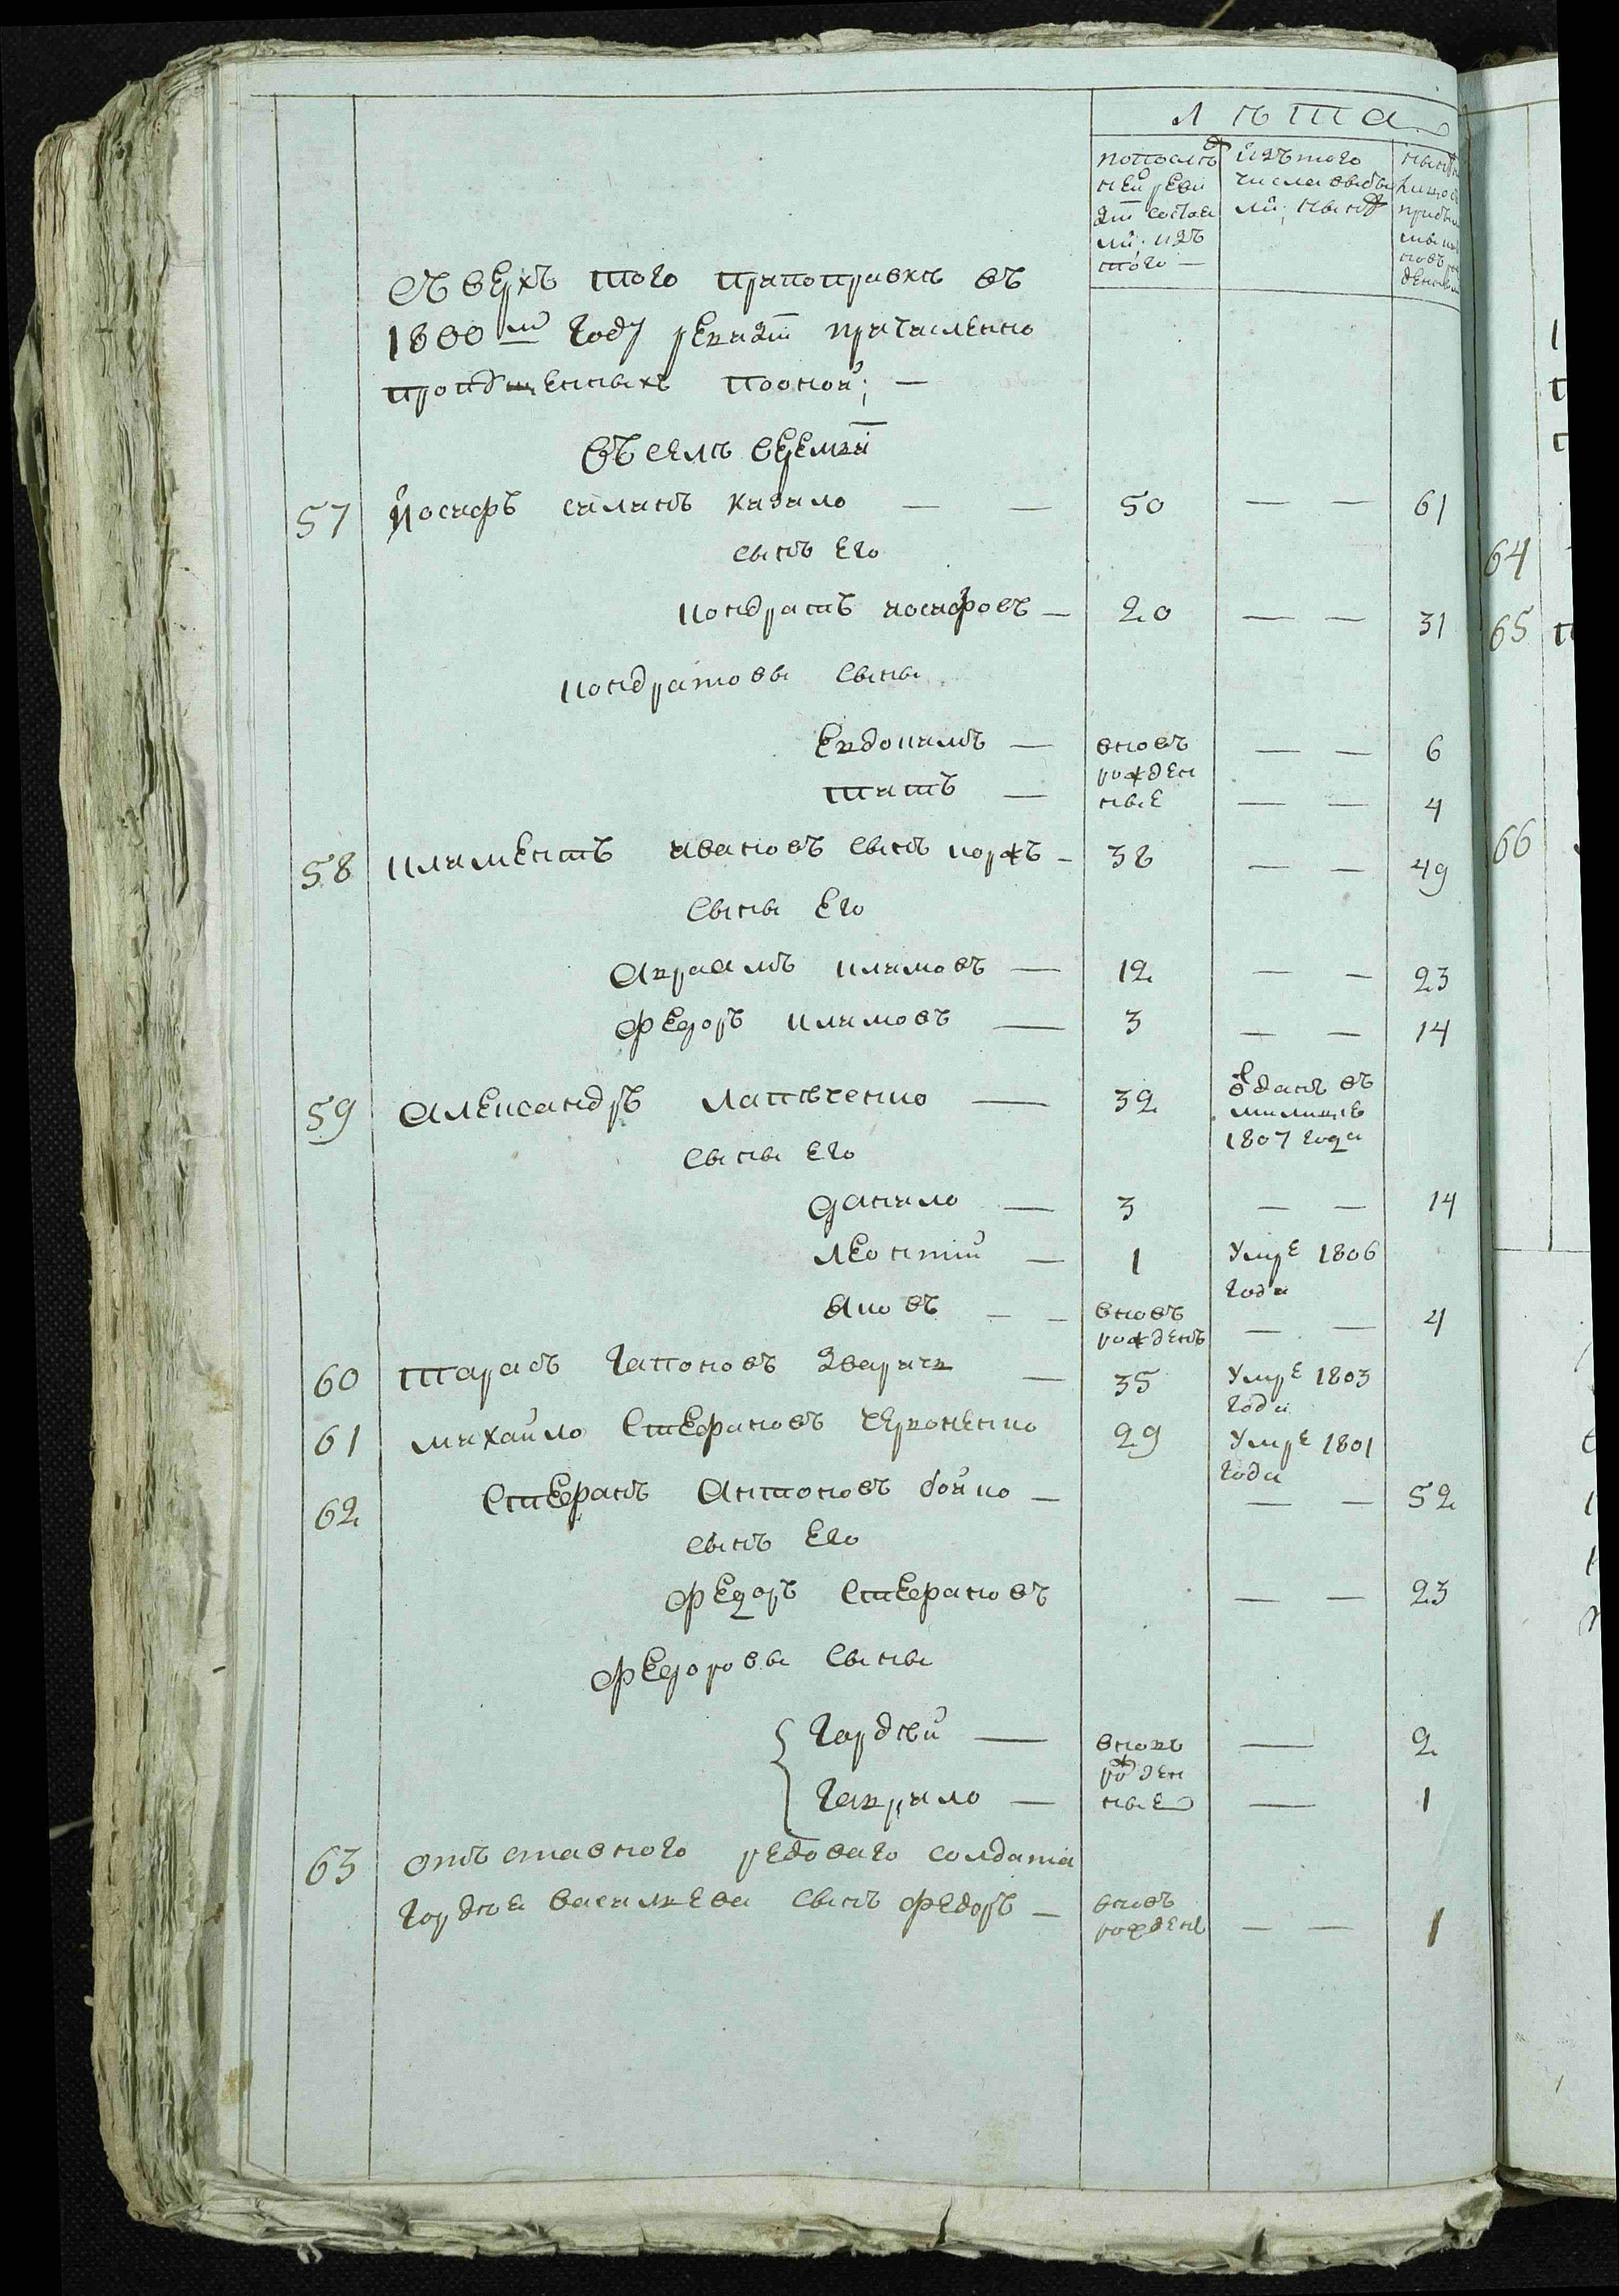 Лѣта
попослѣд
ней реви
зіи состоя
ли; изъ
того —
изътого
числа выбы
ли; нынѣ
Съверхъ того приповѣркѣ въ
1800м году ревизіи причисленно
пропущенныхъ пооной; —
Въ селѣ веремїи
57 Іосифъ силинъ кизило — — 50 — — 61
сынъ его
кондратъ иосифовъ — 20 — — 31
кондратовы сыны
Евдокимъ — вновъ — — 6
рожден
титъ — ные — — 4
58 климентъ ивановъ сынъ коржъ — 38 — — 49
сыны его
Авраамъ климовъ — 12 — — 23
Федоръ климовъ — 3 — — 14
59 Александръ лапѣченко — 32 отданъ въ
милицію
1807 года
сыны его
данило — 3 — — 14
леонтій — 1 умре 1806
года
яковъ — — вновъ
рожденъ — — 4
60 тарасъ гапоновъ зварич — 35 умре 1803
года
61 михайло стефановъ червоненко 29 умре 1801
года
62 стефанъ Антоновъ бойко — — — 52
сынъ его
Федоръ стефановъ — — 23
Федоровы сыны
гордѣй — вновъ — 2
рожден
гаврило — ные — 1
63 отъставного редоваго солдата
гордѣя василиева сынъ Федоръ — вновъ
рожденъ — — 1
64
65
66